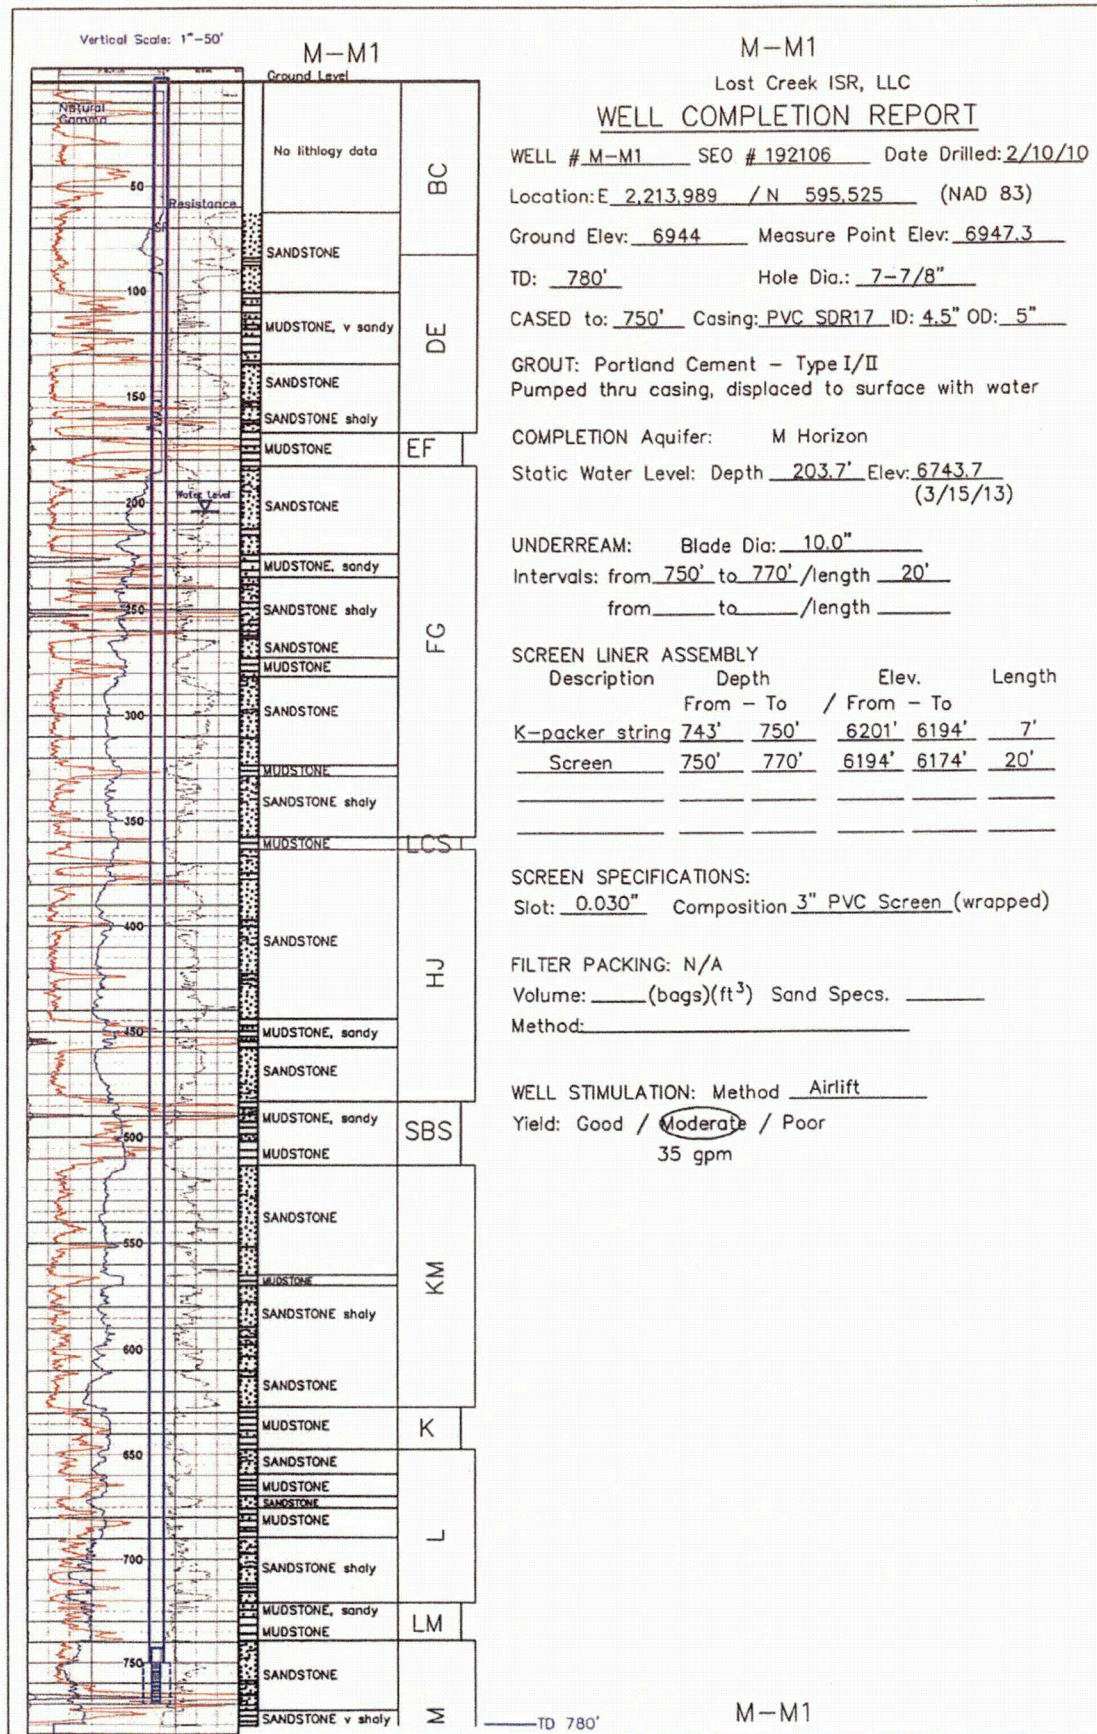 Vertical Scale: 1"-50'
M-M1
Ground Level
Natural
Gamma
Resistance
SP
Water Level
50
100
150
200
250
300
350
400
450
500
550
600
650
700
750
No lithlogy data
SANDSTONE
MUDSTONE, v sandy
SANDSTONE
SANDSTONE shaly
MUDSTONE
SANDSTONE
MUDSTONE, sandy
SANDSTONE shaly
SANDSTONE
MUDSTONE
SANDSTONE
MUDSTONE
SANDSTONE shaly
MUDSTONE
SANDSTONE
MUDSTONE, sandy
SANDSTONE
MUDSTONE, sandy
MUDSTONE
SANDSTONE
MUDSTONE
SANDSTONE shaly
SANDSTONE
MUDSTONE
SANDSTONE
MUDSTONE
SANDSTONE
MUDSTONE
SANDSTONE shaly
MUDSTONE, sandy
MUDSTONE
SANDSTONE
SANDSTONE v shaly
BC
DE
EF
FG
LCS
HJ
SBS
KM
K
L
LM
M
TD 780'
M-M1
Lost Creek ISR, LLC
WELL COMPLETION REPORT
WELL # M-M1 SEO # 192106 Date Drilled: 2/10/10
Location: E 2,213,989 / N 595,525 (NAD 83)
Ground Elev: 6944 Measure Point Elev: 6947.3
TD: 780' Hole Dia.: 7-7/8"
CASED to: 750' Casing: PVC SDR17 ID: 4.5" OD: 5"
GROUT: Portland Cement - Type I/II
Pumped thru casing, displaced to surface with water
COMPLETION Aquifer: M Horizon
Static Water Level: Depth 203.7' Elev: 6743.7
(3/15/13)
UNDERREAM: Blade Dia: 10.0"
Intervals: from 750' to 770' /length 20'
from to /length
SCREEN LINER ASSEMBLY
Description Depth Elev. Length
From - To / From - To
K-packer string 743' 750' 6201' 6194' 7'
Screen 750' 770' 6194' 6174' 20'
SCREEN SPECIFICATIONS:
Slot: 0.030" Composition 3" PVC Screen (wrapped)
FILTER PACKING: N/A
Volume: (bags)(ft³) Sand Specs.
Method:
WELL STIMULATION: Method Airlift
Yield: Good / Moderate / Poor
35 gpm
M-M1